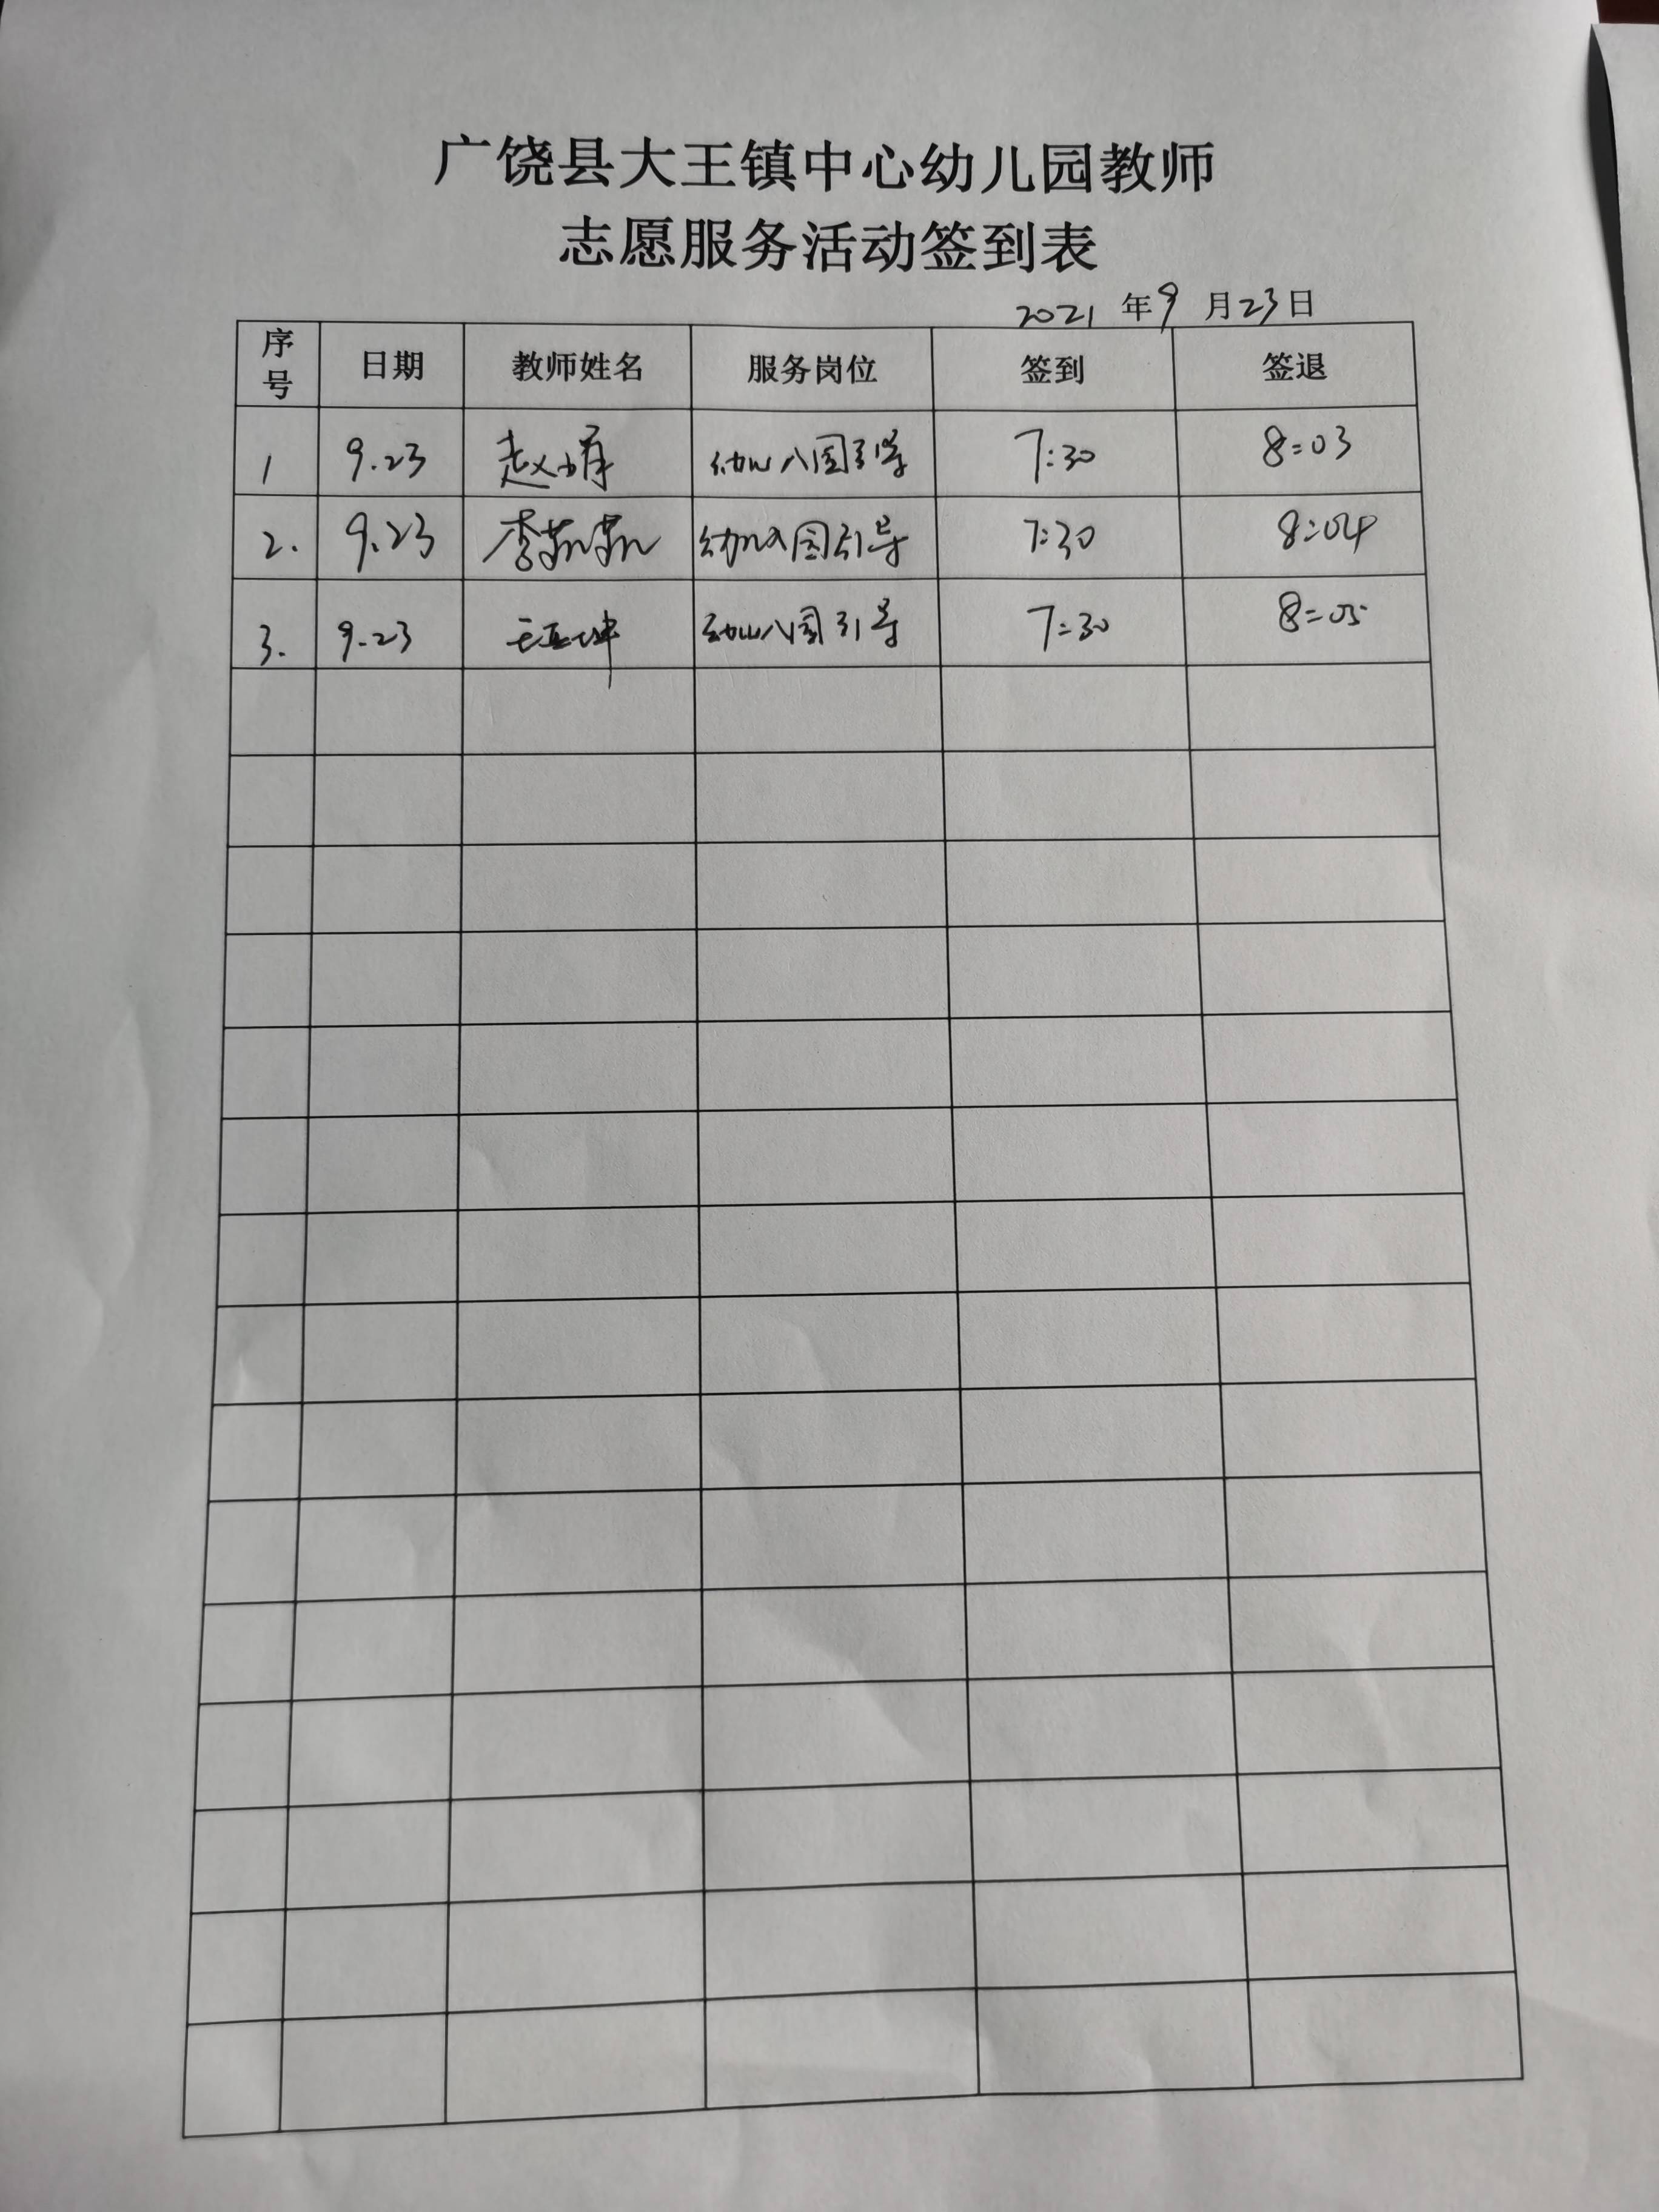 广饶县大王镇中心幼儿园教师
志愿服务活动签到表
2021 年 9 月 23 日
序号 日期 教师姓名 服务岗位 签到 签退
1 9.23 赵 幼儿入园引导 7:30 8:03
2. 9.23 李茹茹 幼儿入园引导 7:30 8:04
3. 9.23 王亚坤 幼儿入园引导 7:30 8:05